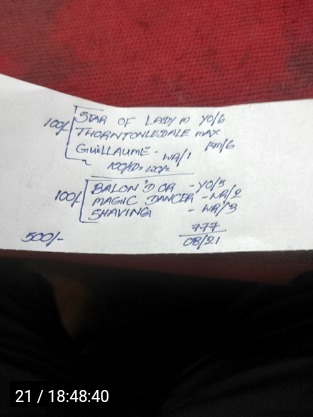 100/- STAR OF LADY M YO/6
THORNTONLEDALE MAX
RM/6
GUILLAUME - WA/1
100/-
100/- BALON D OR - YO/5
MAGIC DANCER - WA/2
SHAVING - WA/3
500/-
777
08/21
21 / 18:48:40